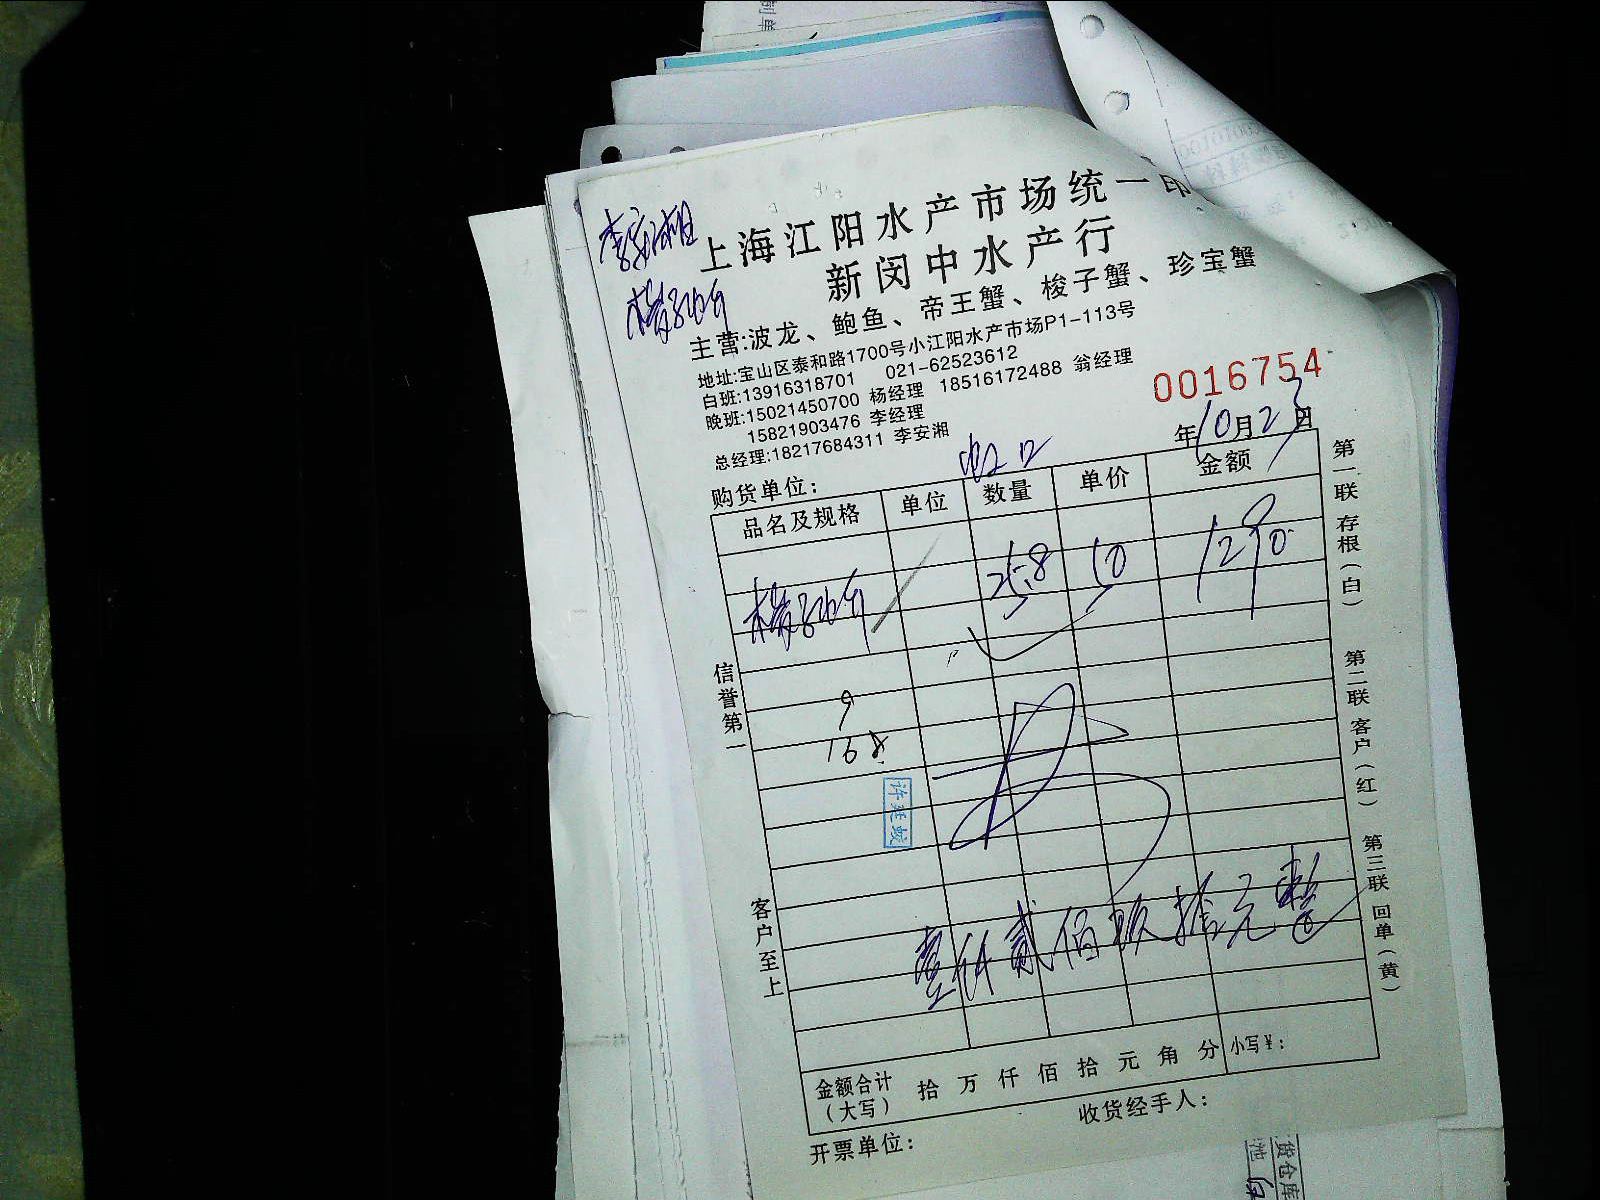 上海江阳水产市场统一印
新闵中水产行
主营:波龙、鲍鱼、帝王蟹、梭子蟹、珍宝蟹
地址:宝山区泰和路1700号小江阳水产市场P1-113号
白班:13916318701 021-62523612
晚班:15021450700 杨经理 18516172488 翁经理
15821903476 李经理
总经理:18217684311 李安湘
0016754
年10月23日
购货单位: 虹口
品名及规格 单位 数量 单价 金额
25.8 50 1290
9
168
许廷蛟
壹仟贰佰玖拾元整
金额合计(大写) 拾 万 仟 佰 拾 元 角 分 小写¥:
开票单位: 收货经手人:
信誉第一
客户至上
第一联 存根(白)
第二联 客户(红)
第三联 回单(黄)